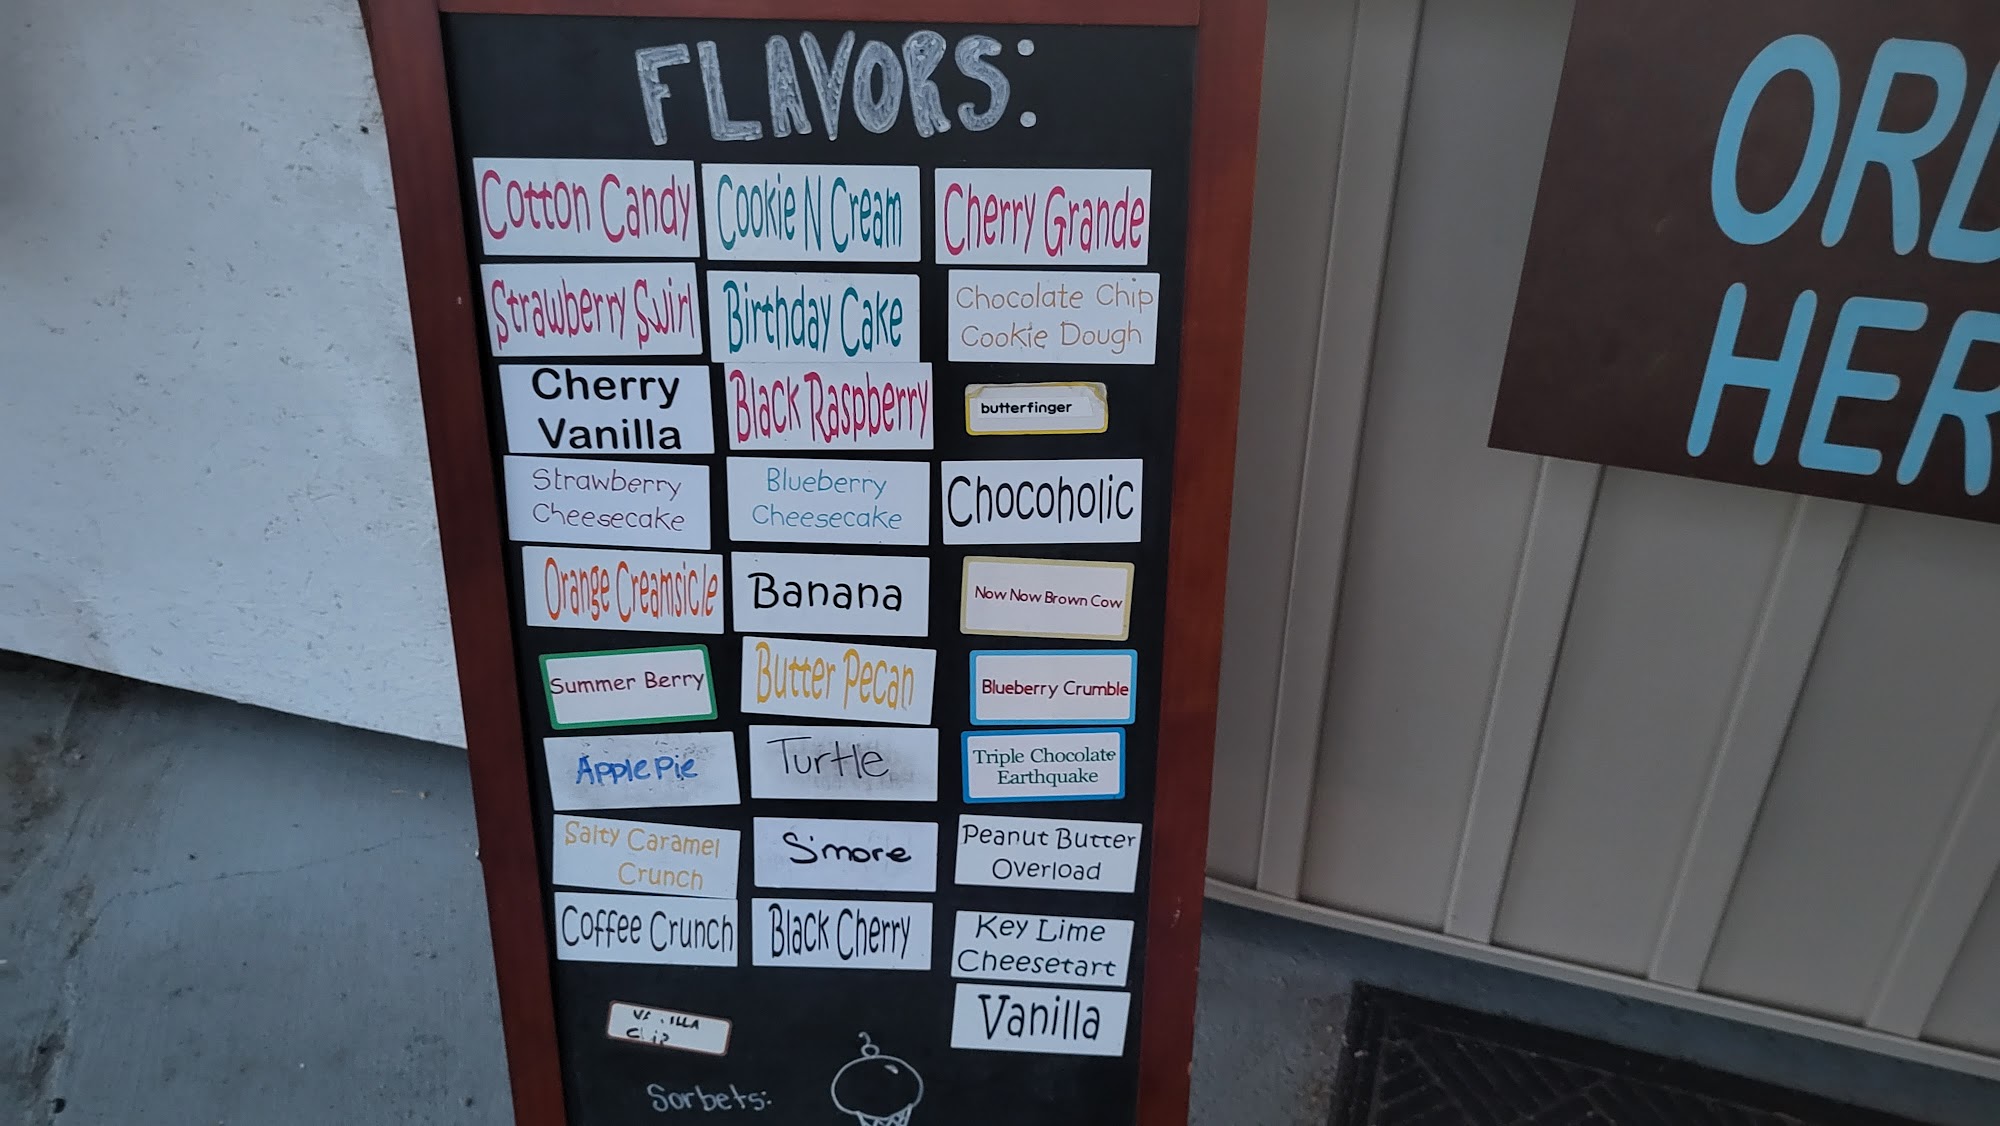 FLAVORS:
Cotton Candy
Cookie N Cream
Cherry Grande
Strawberry Swirl
Birthday Cake
Chocolate Chip
Cookie Dough
Cherry
Vanilla
Black Raspberry
butterfinger
Strawberry
Cheesecake
Blueberry
Cheesecake
Chocoholic
Orange Creamsicle
Banana
Now Now Brown Cow
Summer Berry
Butter Pecan
Blueberry Crumble
Apple Pie
Turtle
Triple Chocolate
Earthquake
Salty Caramel
Crunch
S'more
Peanut Butter
Overload
Coffee Crunch
Black Cherry
Key Lime
Cheesetart
Vanilla
Sorbets: